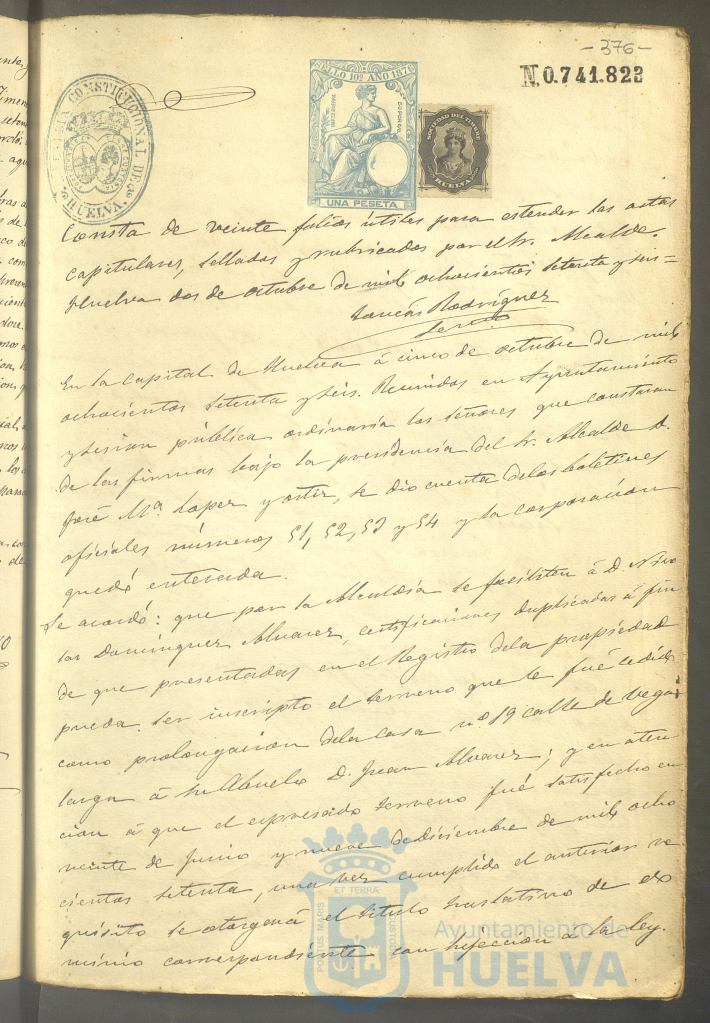 -376-
N.0.741.823
ALCALDIA CONSTITUCIONAL DE HUELVA
SELLO 10º AÑO 1876
UNA PESETA
SOCIEDAD DEL TIMBRE
HUELVA
Consta de veinte folios útiles para estender las actas
capitulares, sellados y rubricados por el Sr. Alcalde.
Huelva dos de octubre de mil ochocientos setenta y seis=
Rodriguez
En la capital de Huelva á cinco de octubre de mil
ochocientos setenta y seis. Reunidos en Ayuntamiento
y sesion pública ordinaria los señores que constaran
de las firmas bajo la presidencia del Sr. Alcalde D.
José Mª Lopez y ortiz, se dio cuenta de los boletines
oficiales números 51, 52, 53 y 54 y la corporacion
quedó enterada.
Se acordó: que por la Alcaldia se faciliten á D. Nico
las Dominguez Alvarez, certificaciones duplicadas á fin
de que presentadas en el Registro de la propiedad
pueda ser inscripto el terreno que le fué cedido
como prolongacion de la casa nº 19 calle de Vega
larga á su Abuelo D. Juan Alvarez; y en aten
cion á que el espresado terreno fué satisfecho en
veinte de Junio y nueve de diciembre de mil ocho
cientos setenta, una vez cumplido el anterior re
quisito se otorgará el título traslativo de do
minio correspondiente con sujecion a la ley.
PORTUS MARIS ET TERRAE CUSTODIA
Ayuntamiento de
HUELVA